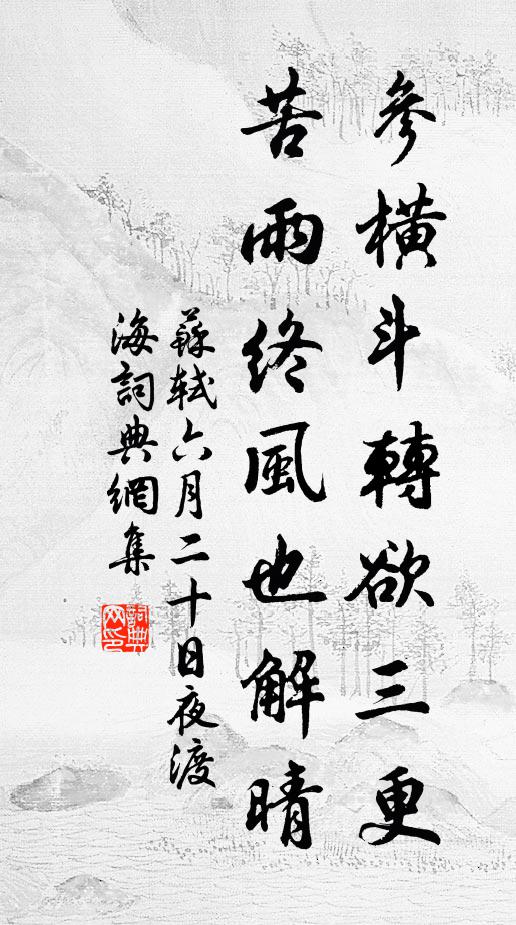 參橫斗轉欲三更
苦雨終風也解晴
蘇軾六月二十日夜渡
海詞典網集
詞典網印